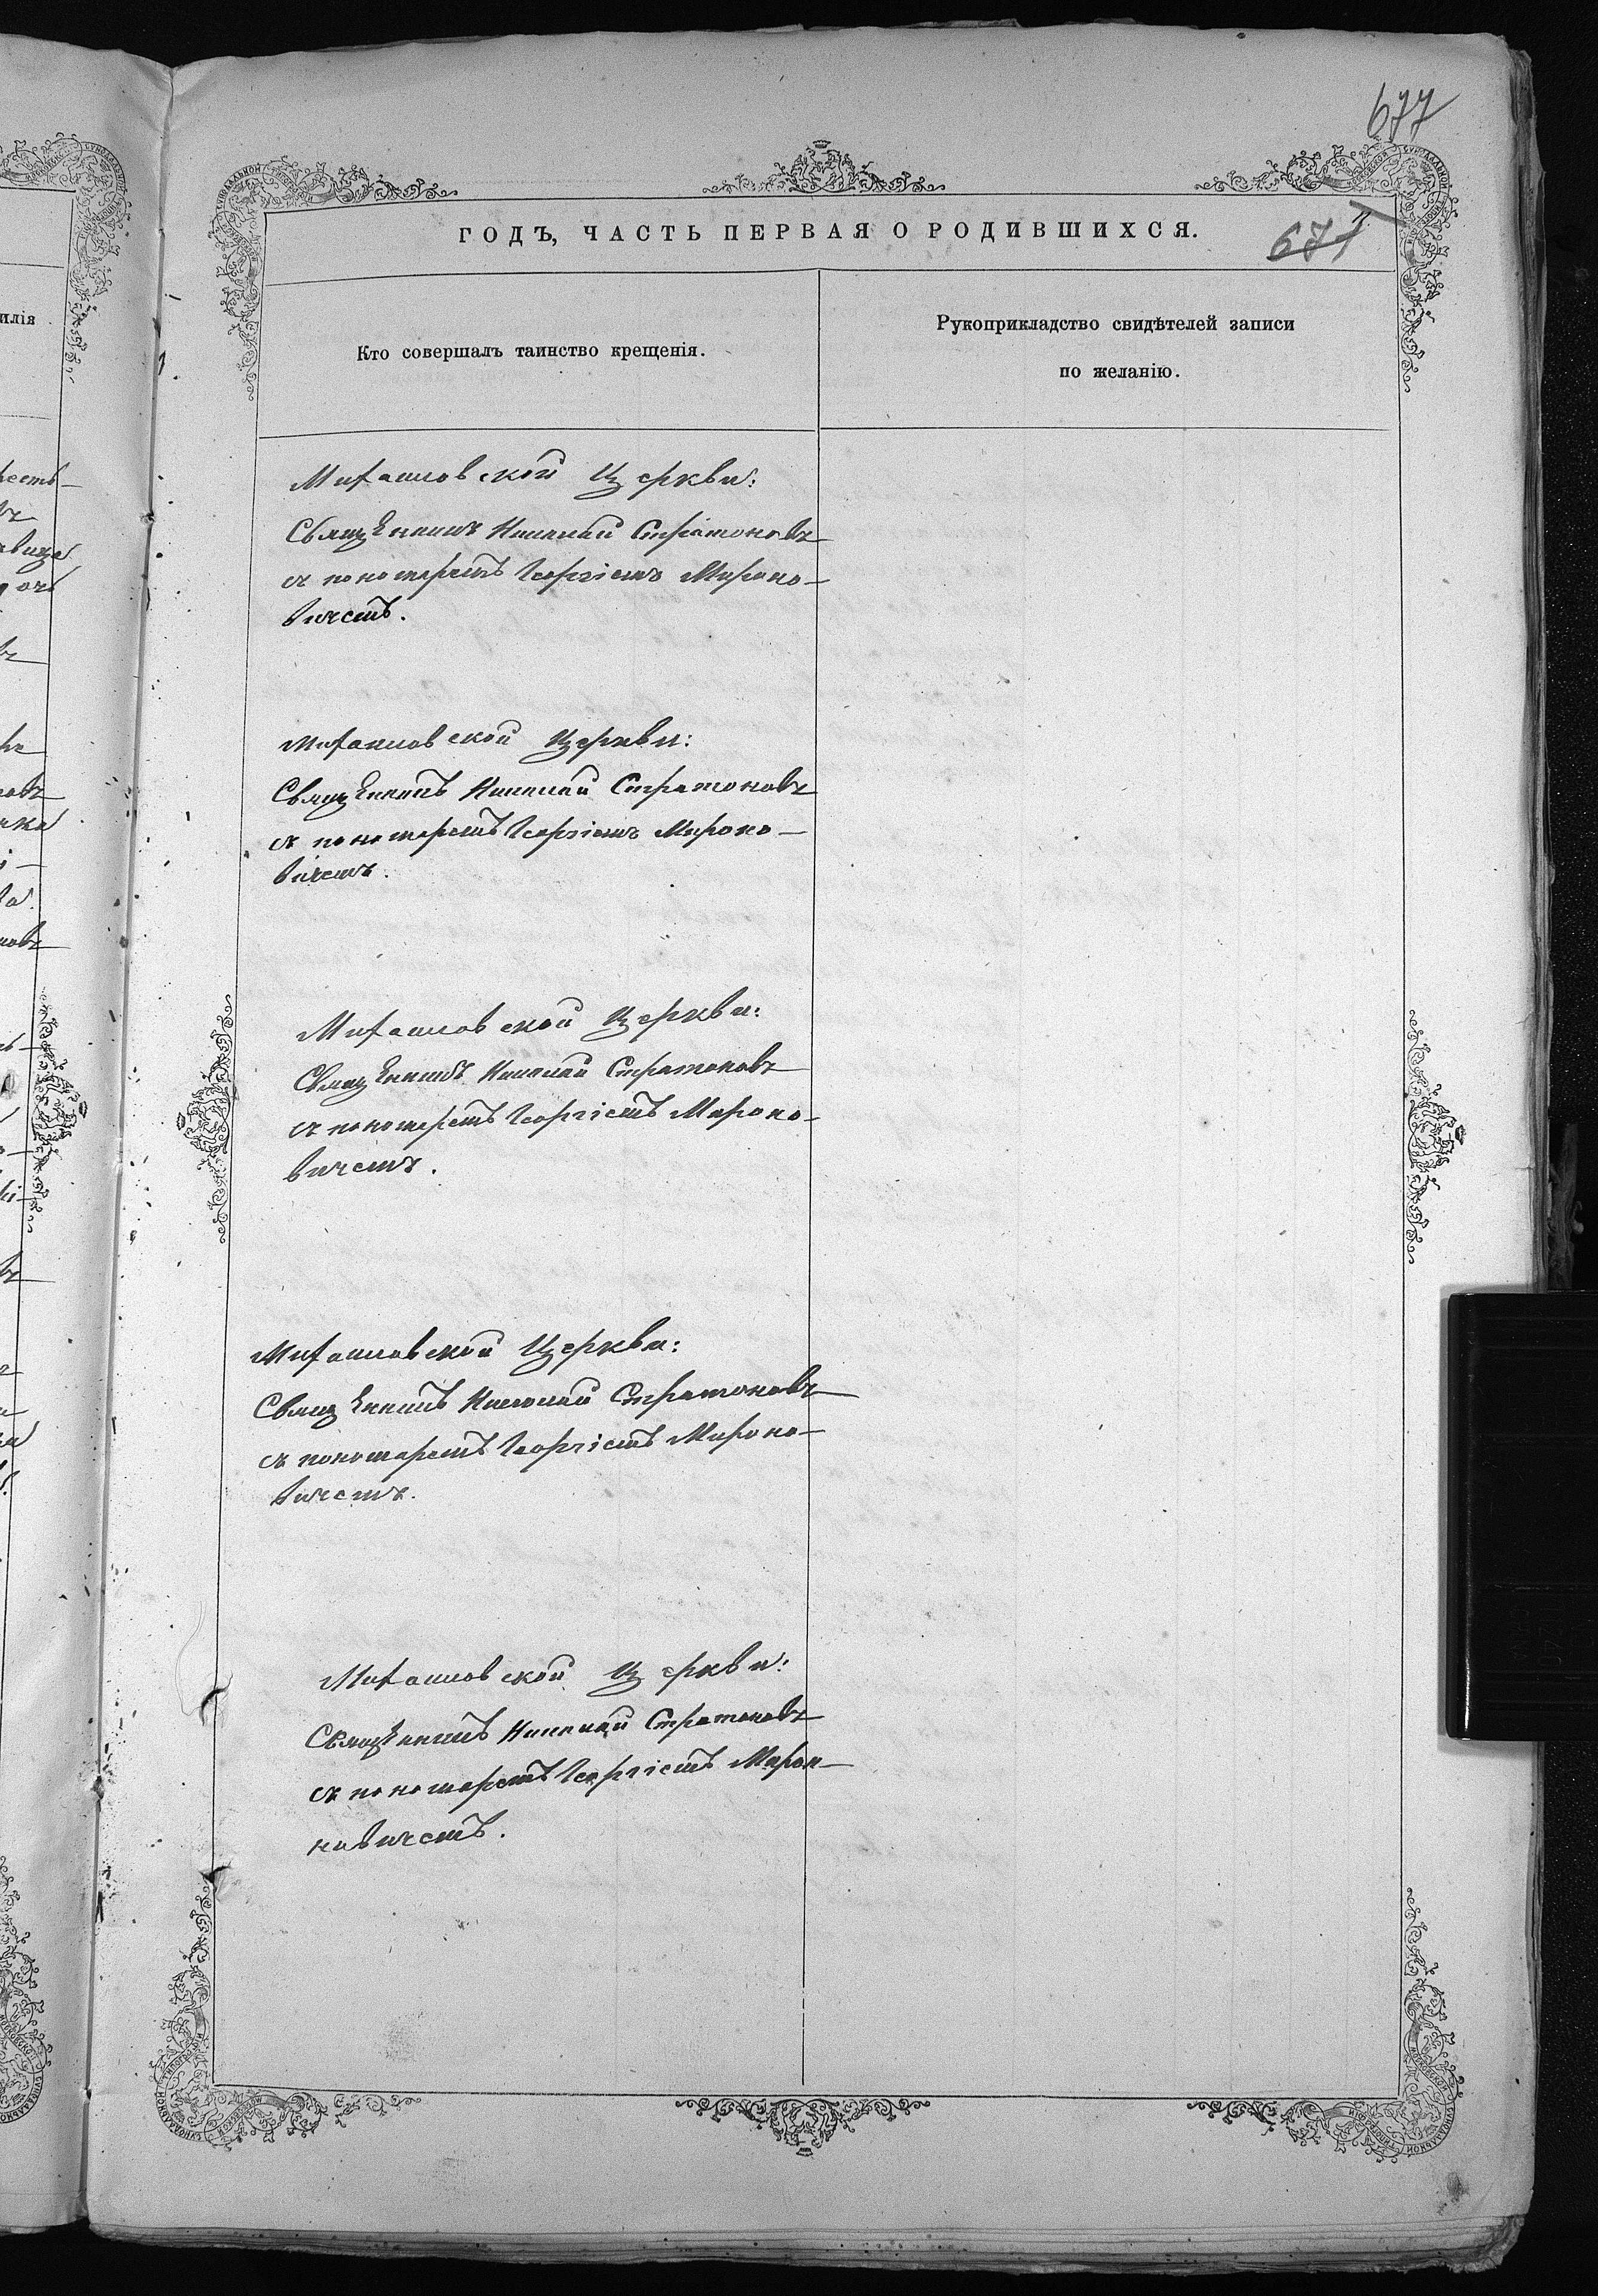 677
ГОДЪ, ЧАСТЬ ПЕРВАЯ О РОДИВШИХСЯ.
677
Кто совершалъ таинство крещенія.
Рукоприкладство свидѣтелей записи
по желанію.
Михайловской Церкви:
Священникъ Николай Стратоновъ
съ пономаремъ Георгіемъ Мироно-
вичемъ.
Михайловской Церкви:
Священникъ Николай Стратоновъ
съ пономаремъ Георгіемъ Мироно-
вичемъ.
Михайловской Церкви:
Священникъ Николай Стратоновъ
съ пономаремъ Георгіемъ Мироно-
вичемъ.
Михайловской Церкви:
Священникъ Николай Стратоновъ
съ пономаремъ Георгіемъ Мироно-
вичемъ.
Михайловской Церкви:
Священникъ Николай Стратоновъ
съ пономаремъ Георгіемъ Миро-
новичемъ.